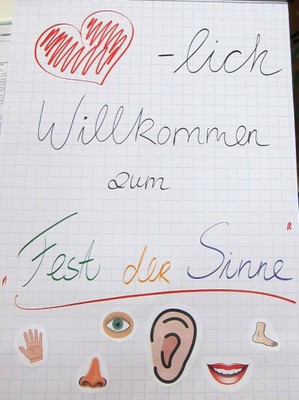 -lich
Willkommen
zum
"Fest der Sinne"